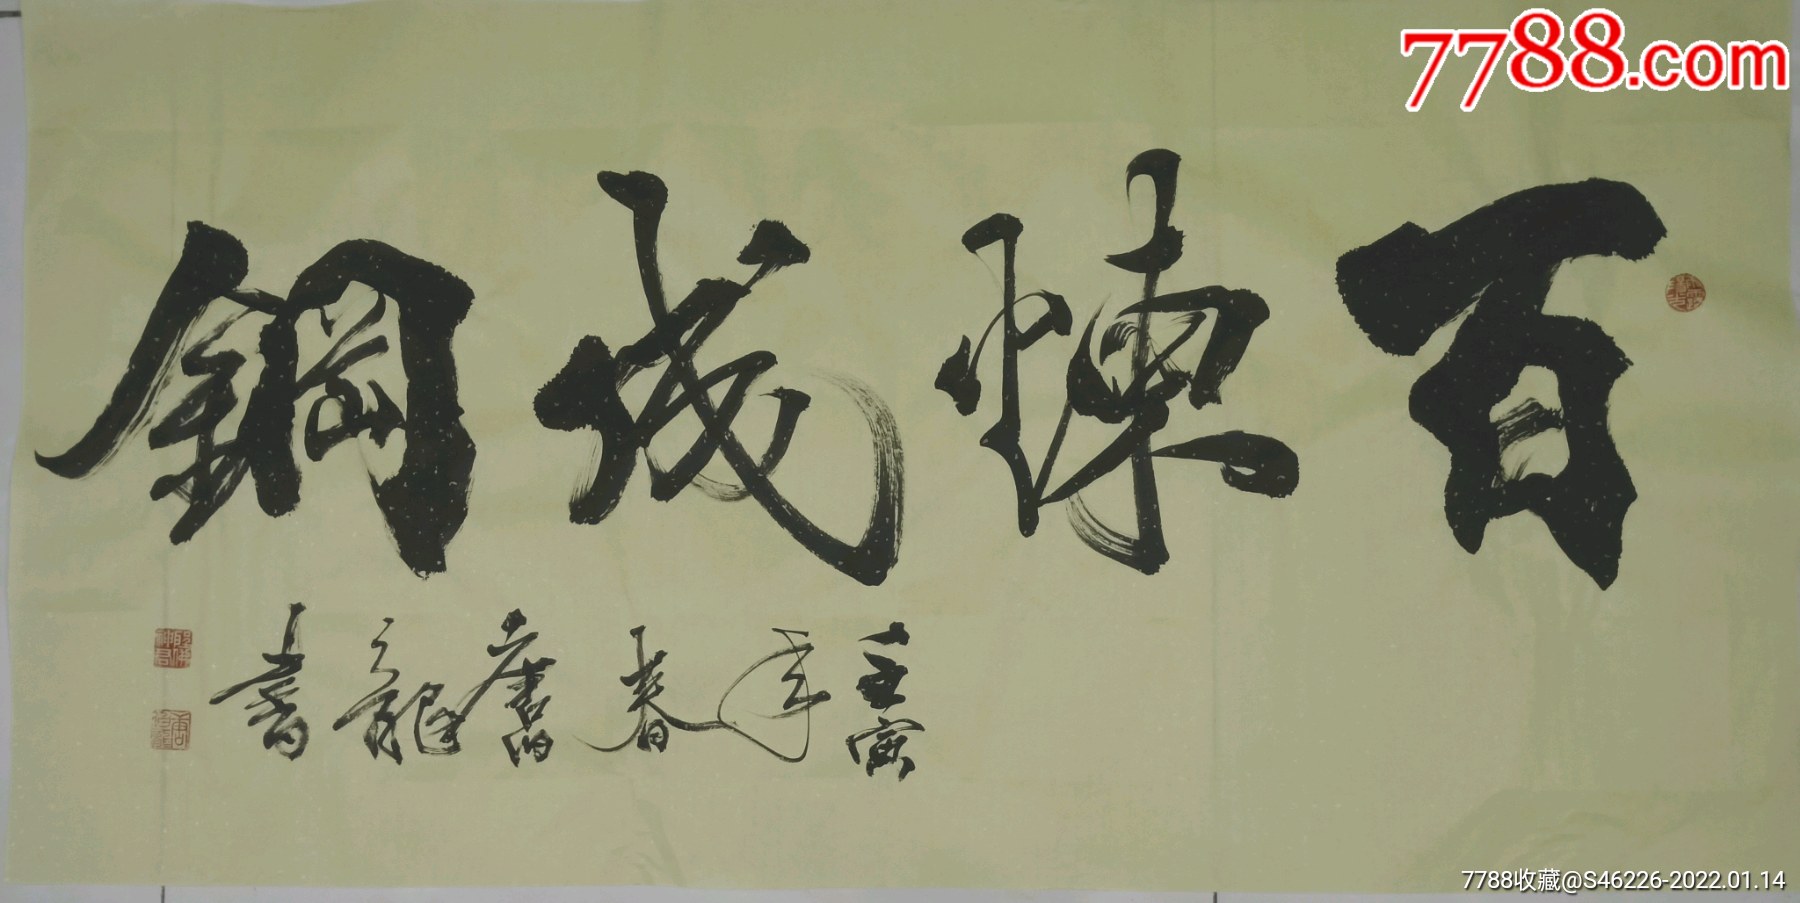 7788.com
百煉成鋼
壬寅年春龍書
7788收藏@S46226-2022.01.14